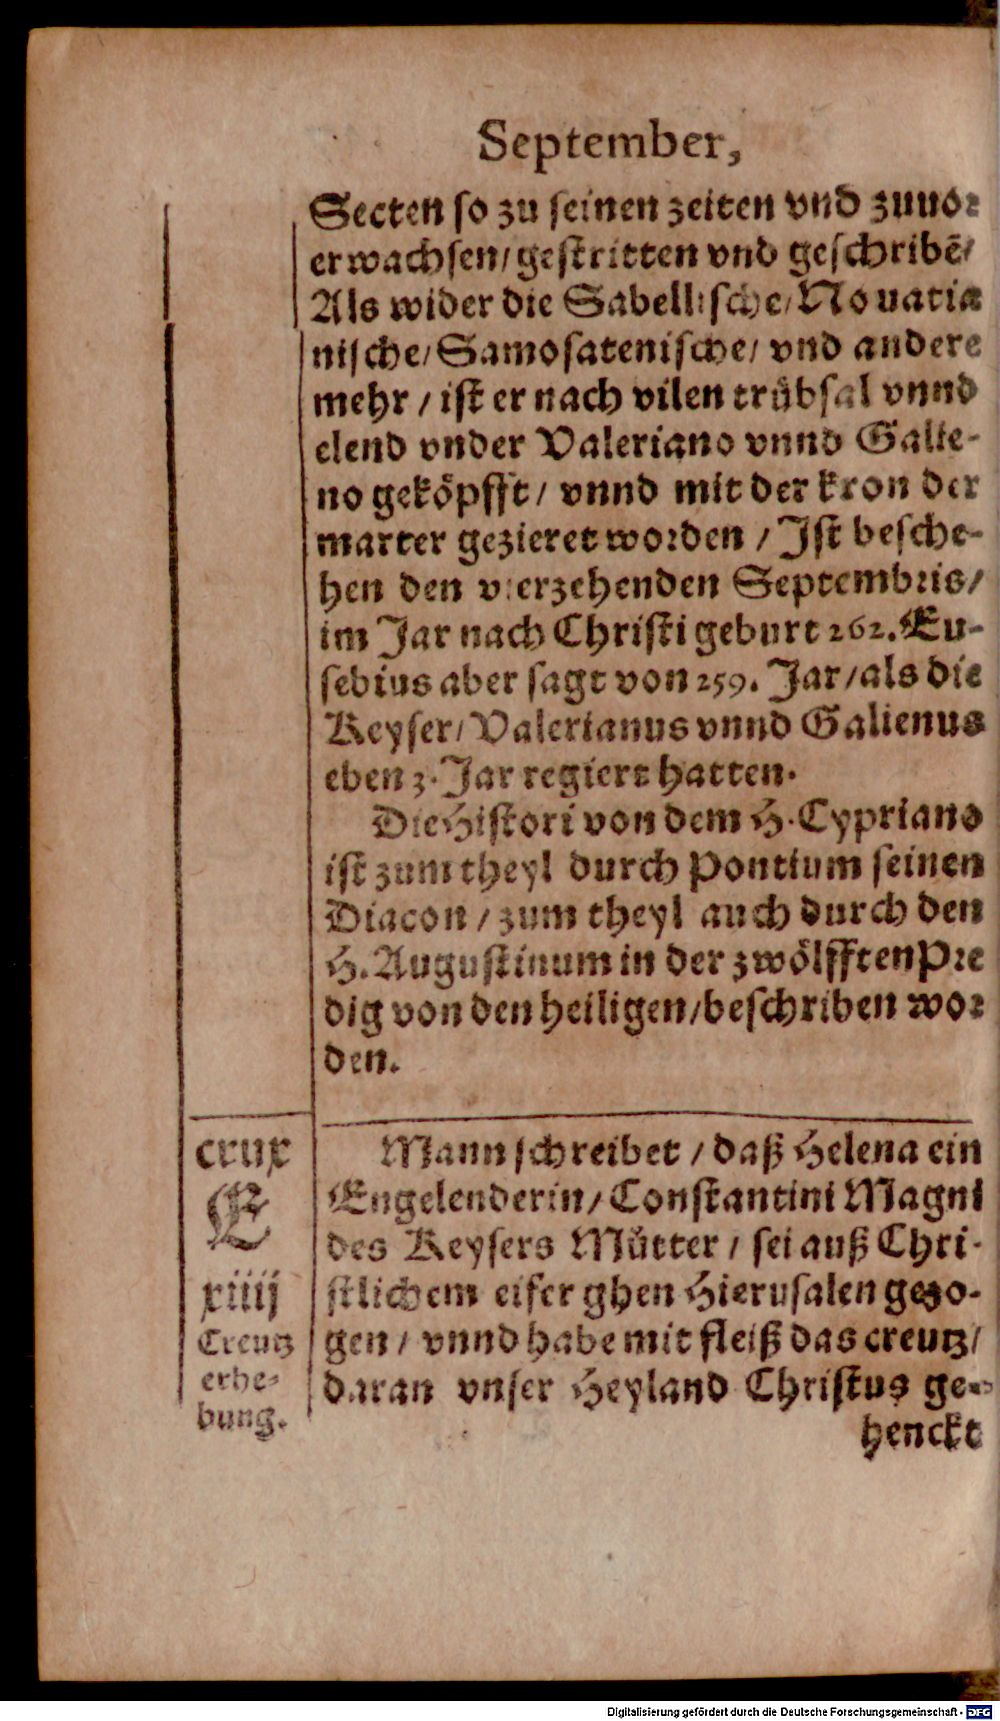 September,
Secten so zu seinen zeiten vnd zuuor
erwachsen/gestritten vnd geschribē/
Als wider die Sabellische/Nouatia
nische/Samosatenische/ vnd andere
mehr / ist er nach vilen trübsal vnnd
elend vnder Valeriano vnnd Galie-
no geköpfft/ vnnd mit der kron der
marter gezieret worden / Ist besche-
hen den vierzehenden Septembris/
im Jar nach Christi geburt 262. Eu-
sebius aber sagt von 259. Jar/als die
Keyser/Valerianus vnnd Galienus
eben 3. Jar regiert hatten.
Die Histori von dem H. Cypriano
ist zum theyl durch Pontium seinen
Diacon / zum theyl auch durch den
H. Augustinum in der zwölfften Pre
dig von den heiligen/beschriben wor
den.
crux
E
xiiij
Creutz
erhe-
bung.
Mann schreibet / daß Helena ein
Engelenderin/Constantini Magni
des Keysers Můtter / sei auß Chri-
stlichem eifer ghen Hierusalen gezo-
gen / vnnd habe mit fleiß das creutz/
daran vnser Heyland Christus ge-
henckt
Digitalisierung gefördert durch die Deutsche Forschungsgemeinschaft - DFG